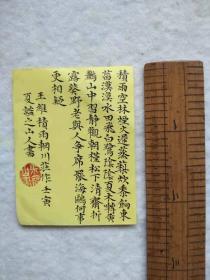 積雨空林煙火遲蒸藜炊黍餉東
菑漠漠水田飛白鷺陰陰夏木囀黃
鸝山中習靜觀朝槿松下清齋折
露葵野老與人爭席罷海鷗何事
更相疑
王維積雨輞川莊作壬寅
夏謐之山人書